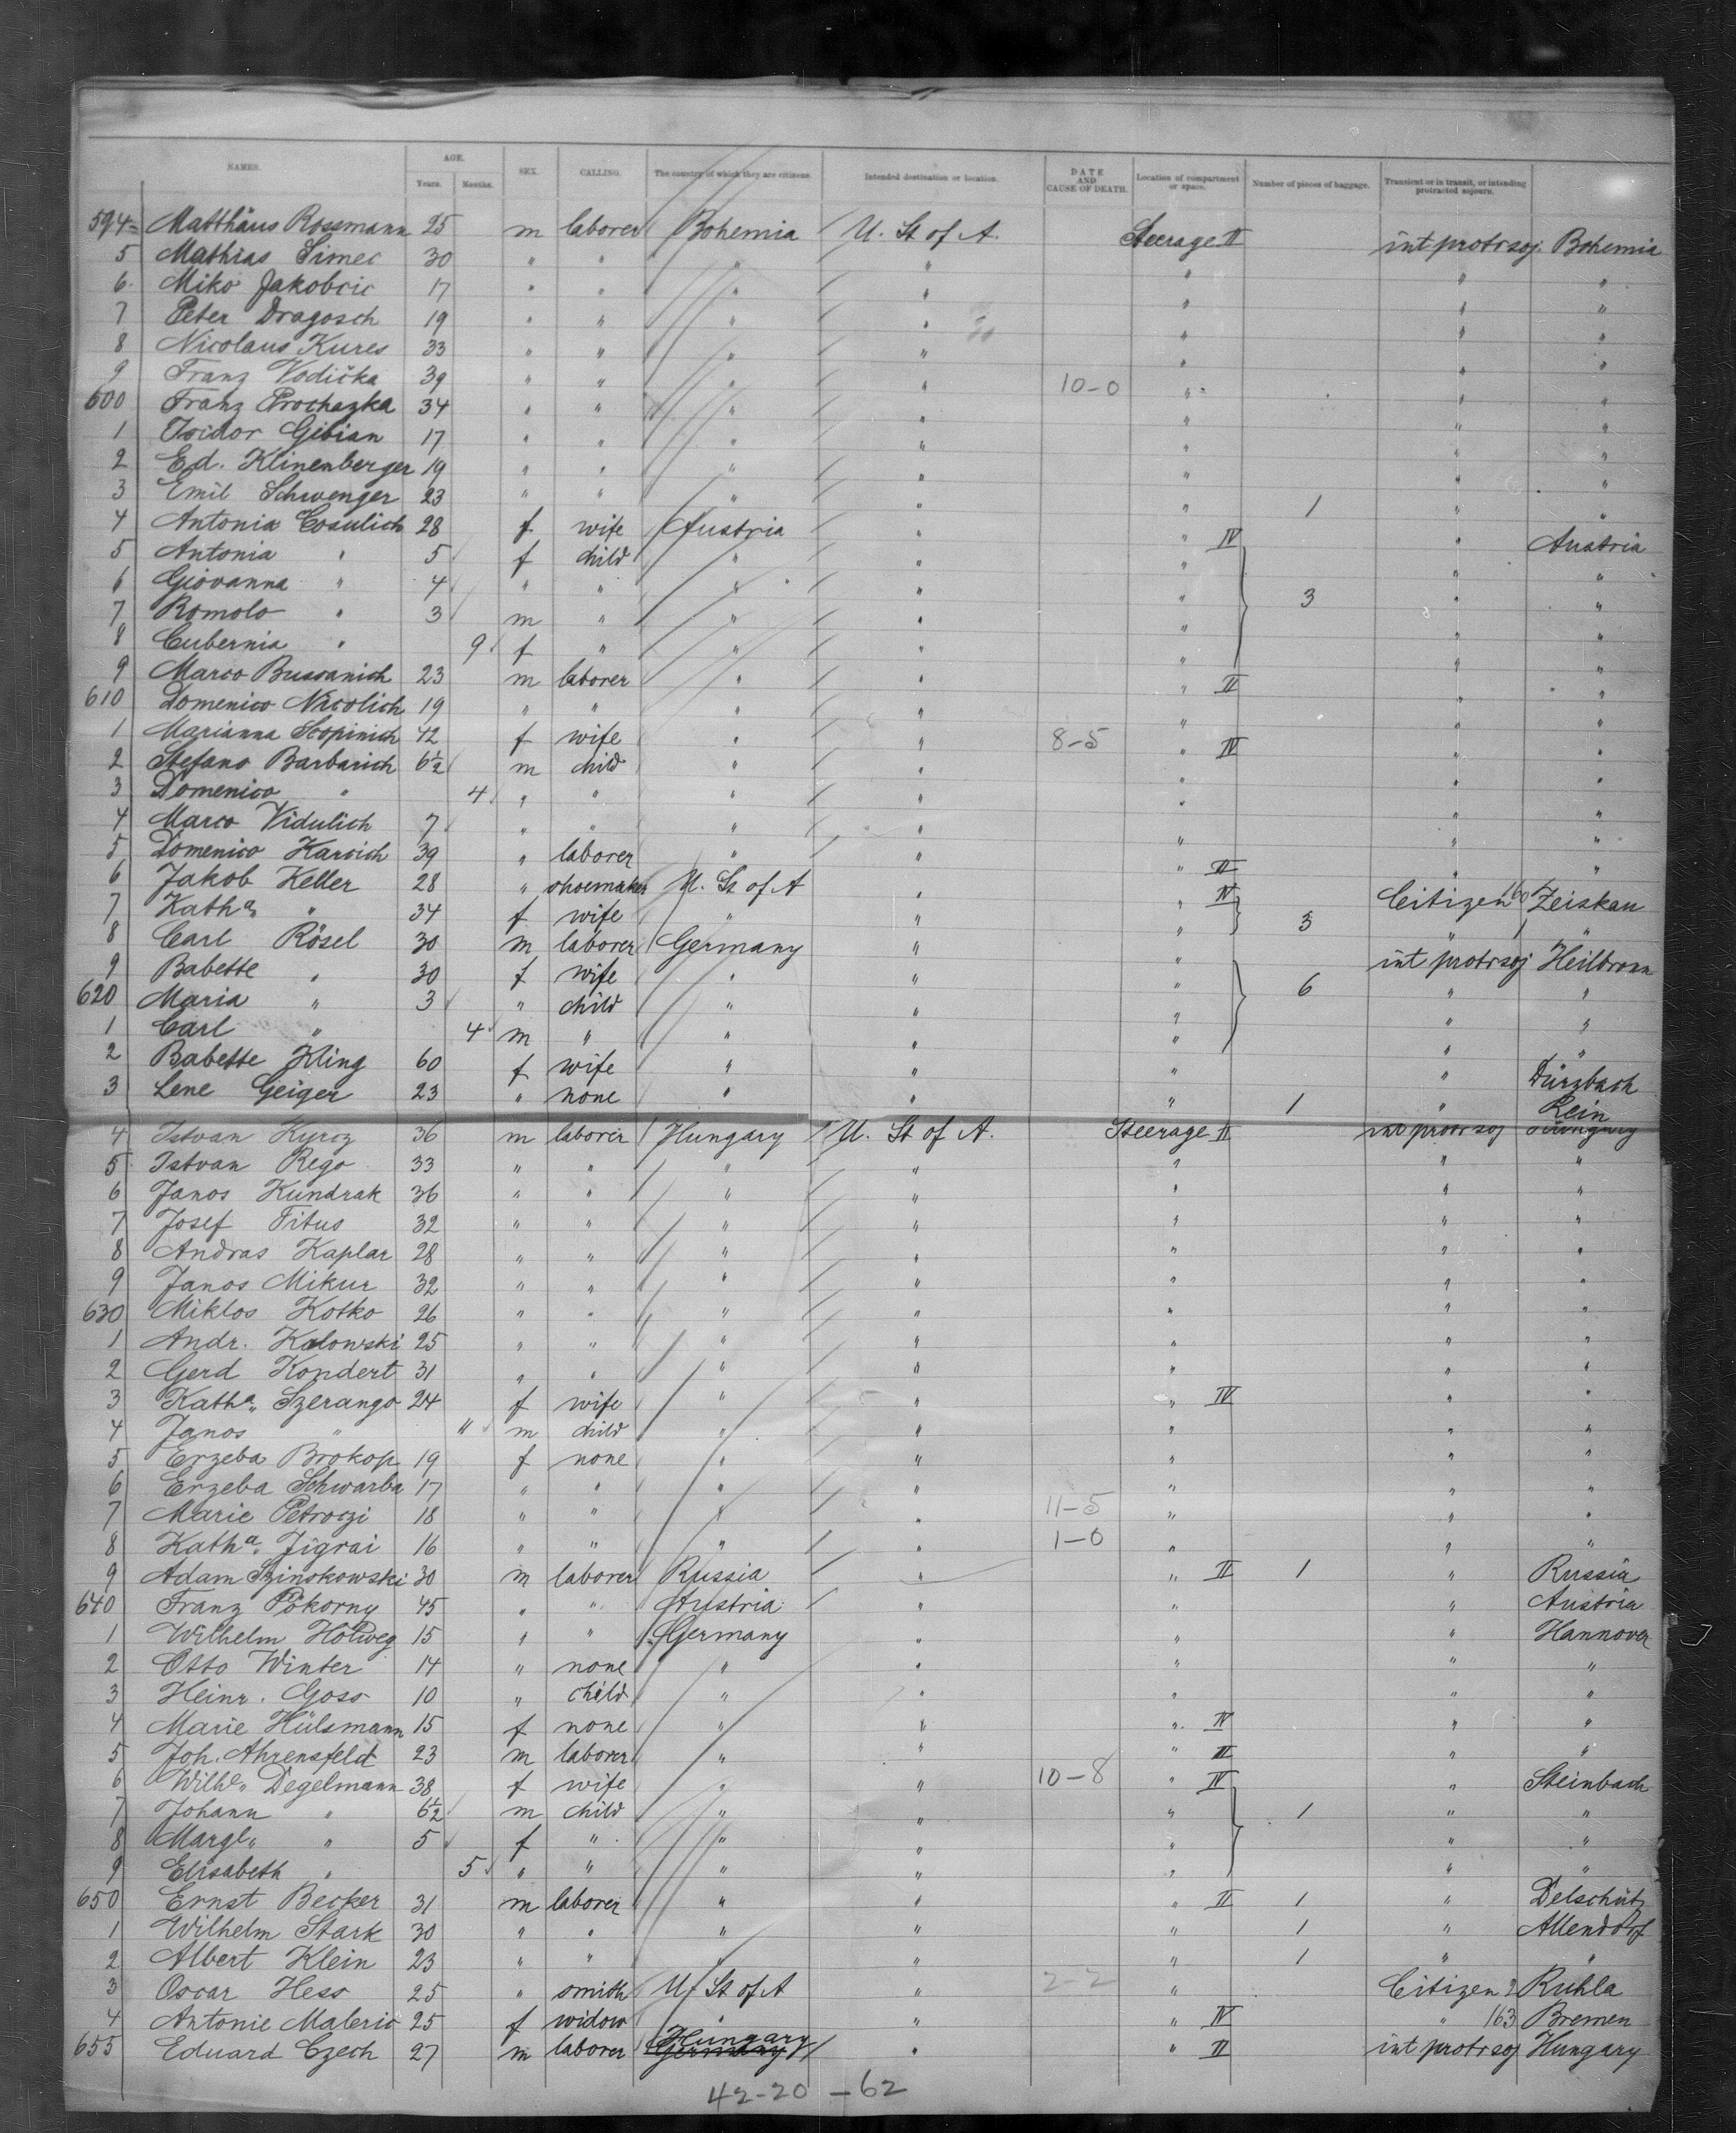 NAMES. AGE. Years. Months. SEX. CALLING. The country of which they are citizens. Intended destination or location. DATE AND CAUSE OF DEATH. Location of compartment or space. Number of pieces of baggage. Transient or in transit, or intending protracted sojourn.
594 Matthäus Rossmann 25 m laborer Bohemia U. St of A. Steerage II int protr soj. Bohemia
5 Mathias Simec 30 " " " " " " "
6 Miko Jakobcic 17 " " " " " " "
7 Peter Dragosch 19 " " " " " " "
8 Nicolaus Kures 33 " " " " " " "
9 Franz Vodička 39 " " " " 10-0 " " "
600 Franz Prochazka 34 " " " " " " "
1 Isidor Gibian 17 " " " " " " "
2 Ed. Klinenberger 19 " " " " " " "
3 Emil Schwenger 23 " " " " " 1 " "
4 Antonia Cosulich 28 f wife Austria " " IV " Austria
5 Antonia " 5 f child " " " " "
6 Giovanna " 4 " " " " " 3 " "
7 Romolo " 3 m " " " " " "
8 Cubernia " 9 f " " " " " "
9 Marco Bussanich 23 m laborer " " " II " "
610 Domenico Nicolich 19 " " " " " " "
1 Marianna Scopinich 42 f wife " " 8-5 " IV " "
2 Stefano Barbarich 6½ m child " " " " "
3 Domenico " 4 " " " " " " "
4 Marco Vidulich 7 " " " " " " "
5 Domenico Karcich 39 " laborer " " " II " "
6 Jakob Keller 28 " shoemaker U. St of A " " IV Citizen 160 Zeiskau
7 Katha " 34 f wife " " " 3 " "
8 Carl Rösel 30 m laborer Germany " " int protr soj Heilbronn
9 Babette " 30 f wife " " " 6 " "
620 Maria " 3 " child " " " " "
1 Carl " 4 m " " " " " "
2 Babette Kling 60 f wife " " " " Dürzbach
3 Lene Geiger 23 " none " " " 1 " Lein
4 Istvan Kyrcz 36 m laborer Hungary U. St of A. Steerage II int protr soj Hungary
5 Istvan Rego 33 " " " " " " "
6 Janos Kundrak 36 " " " " " " "
7 Josef Titus 32 " " " " " " "
8 Andras Kaplar 28 " " " " " " "
9 Janos Mikur 32 " " " " " " "
630 Miklos Kotko 26 " " " " " " "
1 Andr. Kalowski 25 " " " " " " "
2 Gerd Kondert 31 " " " " " " "
3 Katha Szerango 24 f wife " " " IV " "
4 Janos " 11 m child " " " " "
5 Erzeba Brokop 19 f none " " " " "
6 Erzeba Schwarba 17 " " " " " " "
7 Marie Petroczi 18 " " " " 11-5 " " "
8 Katha Jigrai 16 " " " " 1-0 " " "
9 Adam Szinskowski 30 m laborer Russia " " II 1 " Russia
640 Franz Pokorny 45 " " Austria " " " Austria
1 Wilhelm Holweg 15 " " Germany " " " Hannover
2 Otto Winter 14 " none " " " " "
3 Heinr. Goss 10 " child " " " " "
4 Marie Hülsmann 15 f none " " " IV " "
5 Joh. Ahrensfeld 23 m laborer " " " II " "
6 Wilhe Degelmann 38 f wife " " 10-8 " IV " Steinbach
7 Johann " 6½ m child " " " 1 " "
8 Margl " 5 f " " " " " "
9 Elisabeth " 5 " " " " " " "
650 Ernst Becker 31 m laborer " " " II 1 " Delschütz
1 Wilhelm Stark 30 " " " " " 1 " Allendorf
2 Albert Klein 23 " " " " " 1 " "
3 Oscar Hess 25 " smith U. St of A " 2-2 " Citizen 2 Ruhla
4 Antonie Maleric 25 f widow " " " IV " 163 Bremen
655 Eduard Czech 27 m laborer Hungary " " II int protr soj Hungary
42-20-62